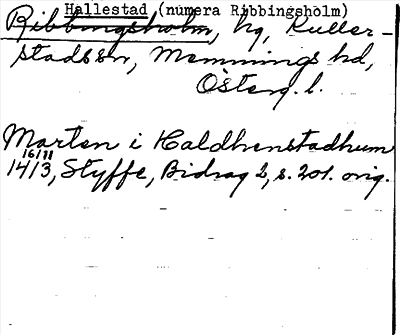 Hallestad (numera Ribbingsholm)
Ribbingsholm, hg, Kuller-
stads sn, Memmings hd,
Österg. l.
Marten i Haldhenstadhum
16/11 1413, Styffe, Bidrag 2, s. 201. orig.